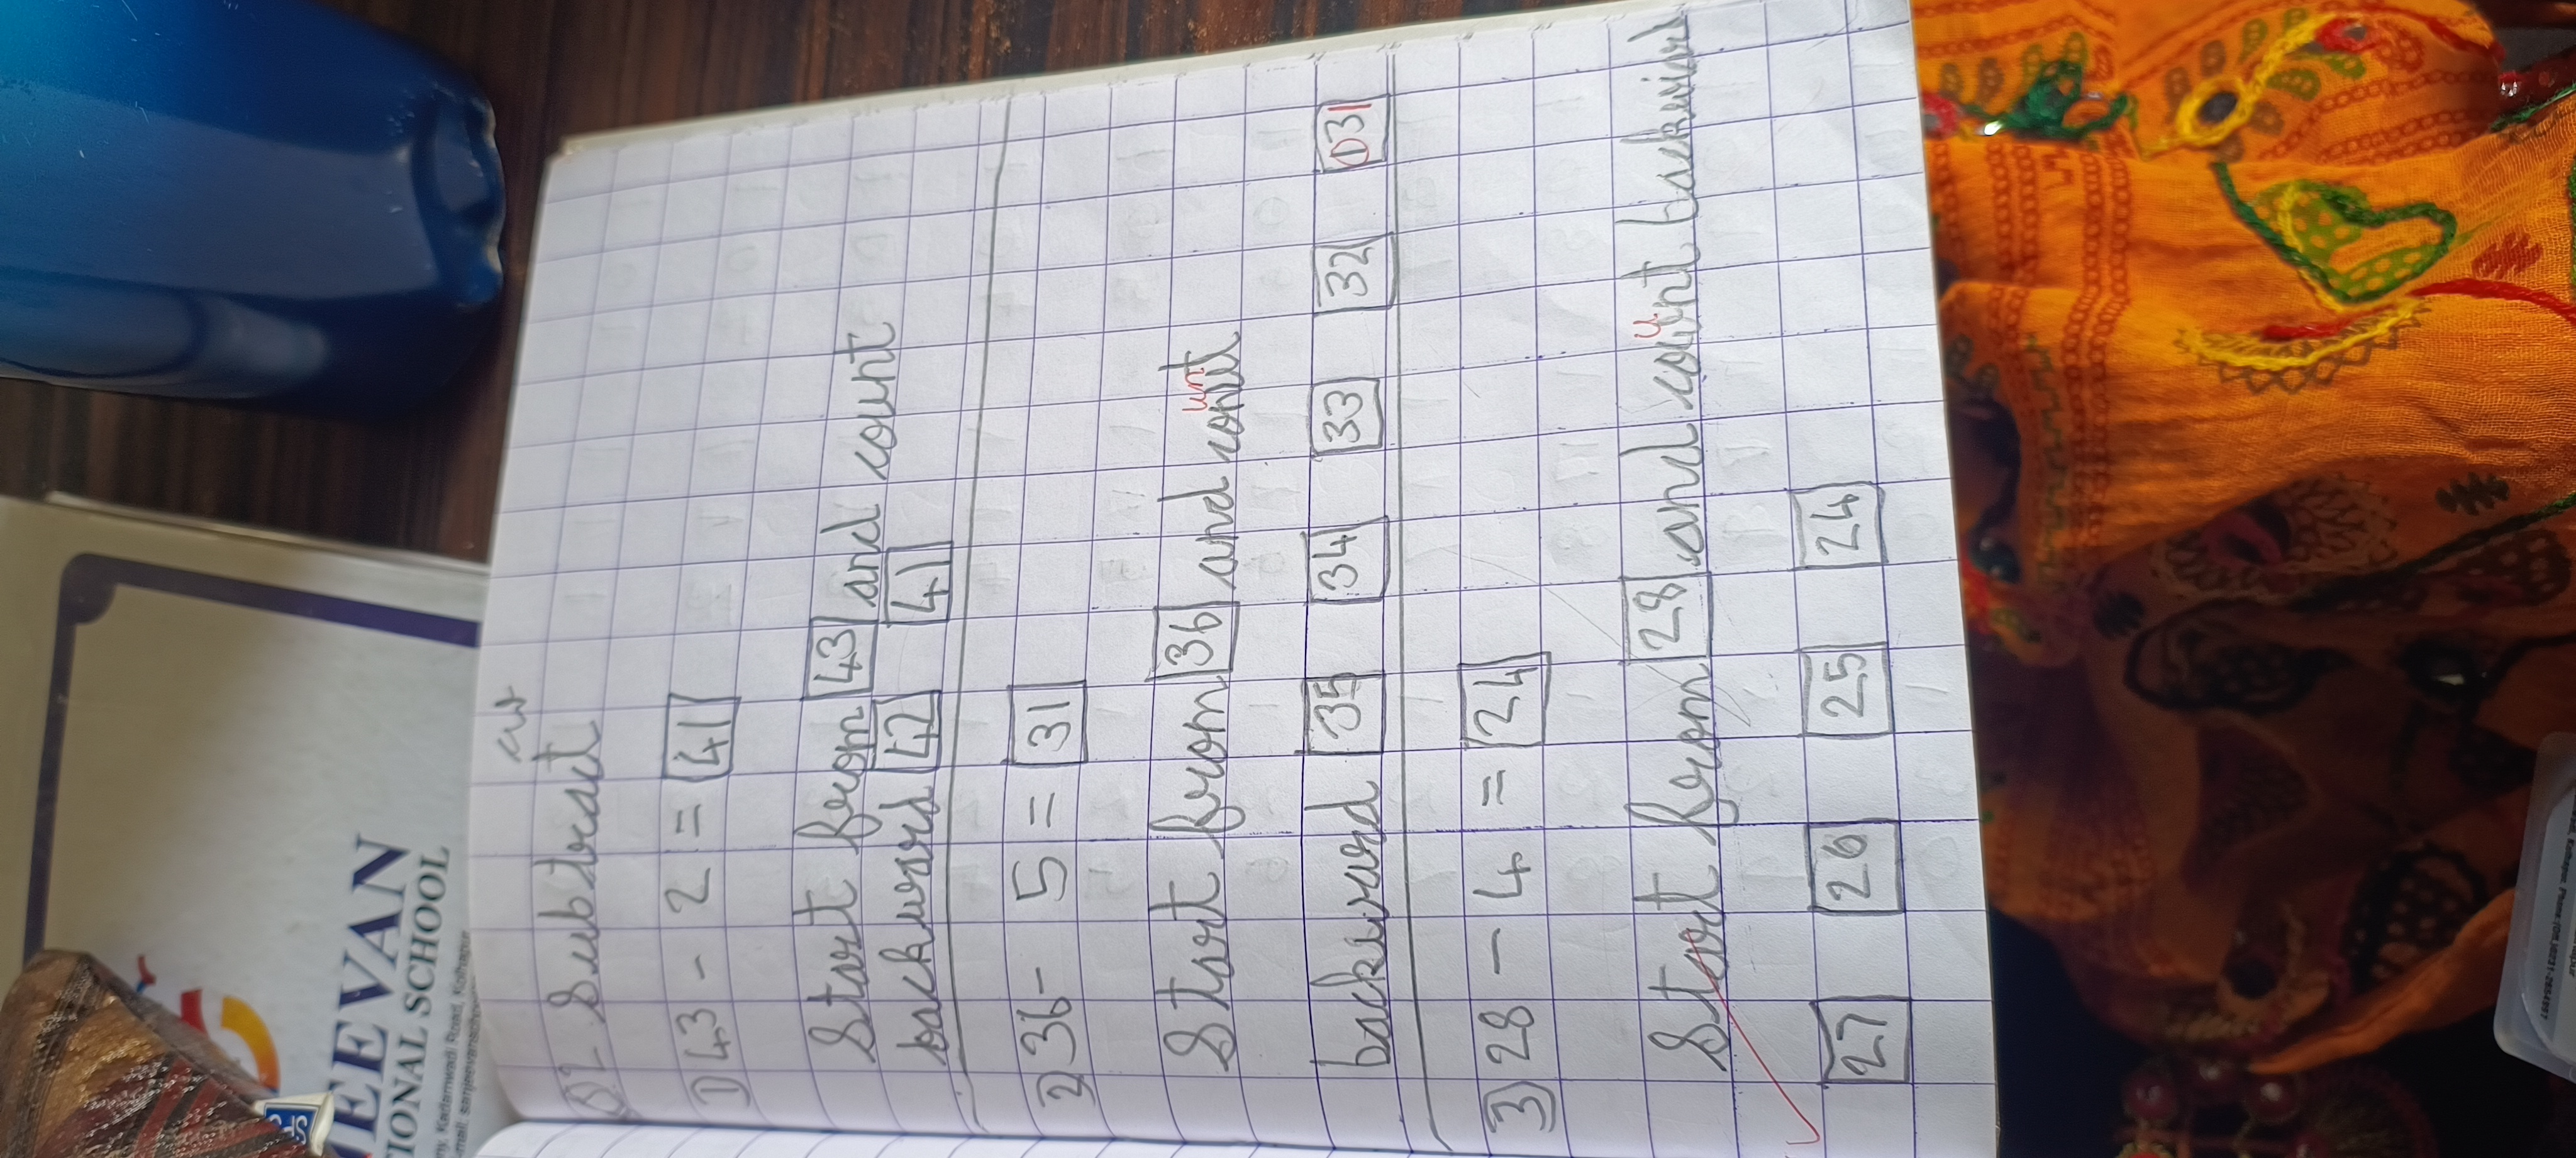 cw
Q2 Subtract
1) 43 - 2 = 41
Start from 43 and count
backward 42 41
2) 36 - 5 = 31
unt
Start from 36 and cont
backward 35 34 33 32 31
3) 28 - 4 = 24
u
Start from 28 and count backward
27 26 25 24
EEVAN
IONAL SCHOOL
Kadamwadi Road, Kolhapur